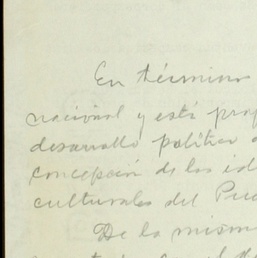 En términos
nacional y está
desarrollo político
concepción de los
culturales del
De la misma